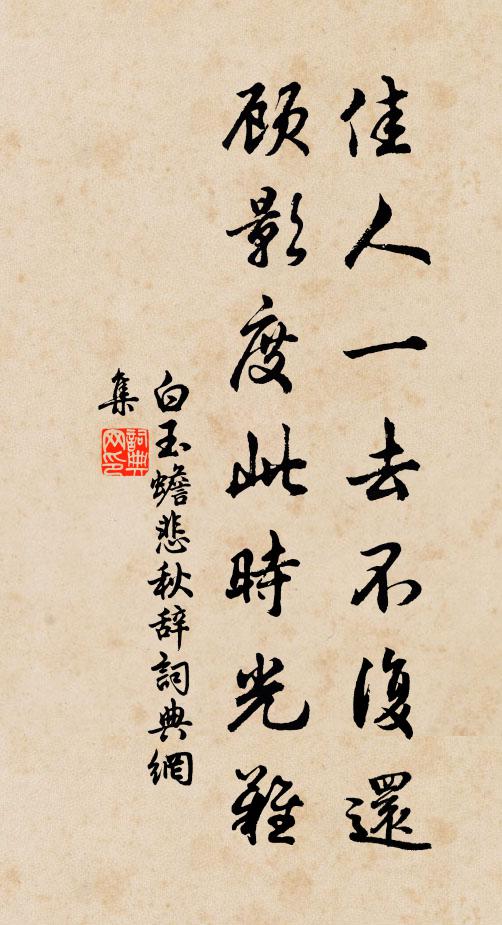 佳人一去不復還
顾影度此時光難
白玉蟾悲秋辞詞典網
集
詞典
网印